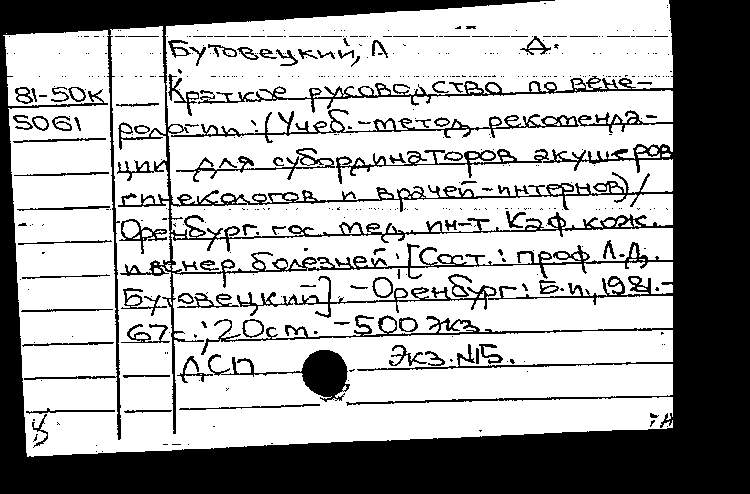 Бутовецкий, Л Д.
81-50к Краткое руководство по вене-
5061 рологии : (Учеб.-метод. рекоменда-
ции для субординаторов акушеров
гинекологов и врачей-интернов) /
Оренбург. гос. мед. ин-т. Каф. кож.
и венер. болезней; [Сост.: проф. Л.Д.
Бутовецкий]. - Оренбург : Б.и., 1981. -
67с.; 20см. - 500 экз.
ДСП Экз. №15.